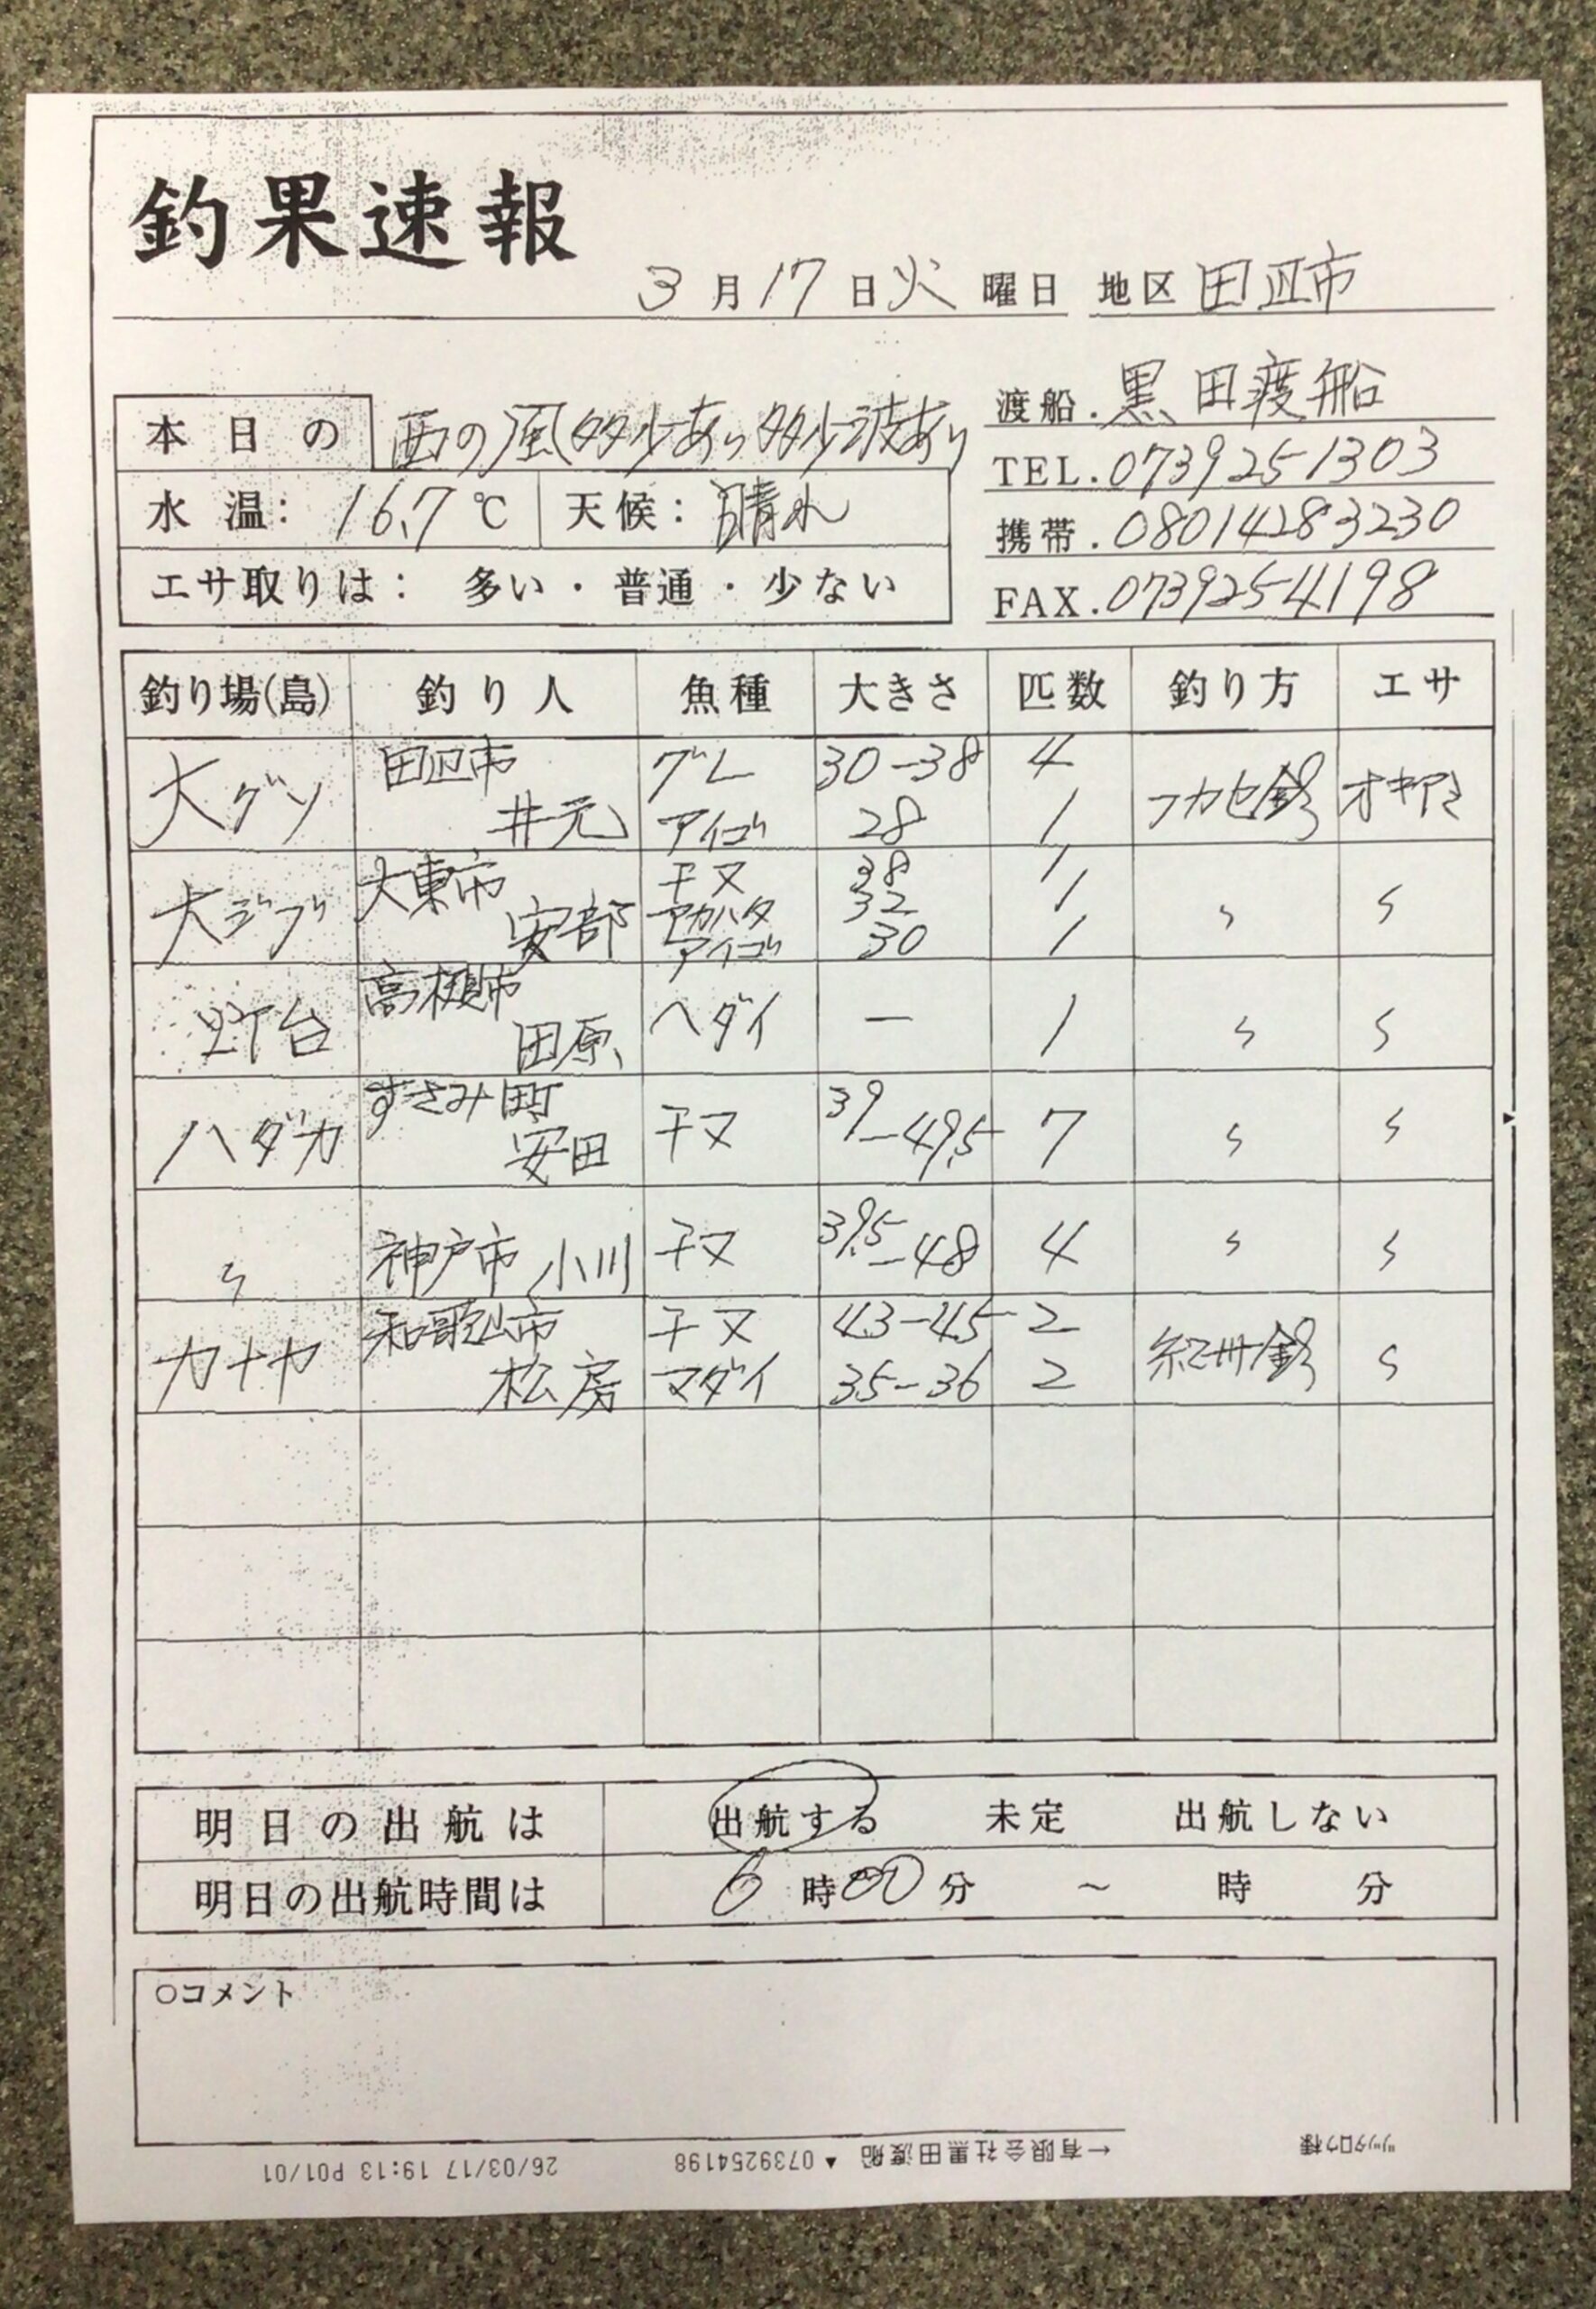 釣果速報
3月17日火曜日 地区 田辺市
渡船.黒田渡船
本日の 西の風多少あり多少波あり
TEL.0739251303
水温: 16.7℃ 天候: 晴れ
携帯.08014283230
エサ取りは: 多い・普通・少ない
FAX.0739254198
釣り場(島) 釣り人 魚種 大きさ 匹数 釣り方 エサ
大グソ 田辺市 井元 グレ 30-38 4 フカセ釣 オキアミ
アイゴ 28 1
大ジブ 大東市 安部 チヌ 38 1 〃 〃
アカハタ 32 1
アイゴ 30 1
高槻市 田原 ヘダイ ー 1 〃 〃
ハダカ すさみ町 安田 チヌ 39-49.5 7 〃 〃
〃 神戸市 小川 チヌ 39.5-48 4 〃 〃
カナヤ 和歌山市 松房 チヌ 43-45 2 紀州釣 〃
マダイ 35-36 2
明日の出航は 出航する 未定 出航しない
明日の出航時間は 6時00分 ~ 時 分
○コメント
ツッタロウ様
←有限会社黒田渡船 ▲ 0739254198
26/03/17 19:13 P01/01